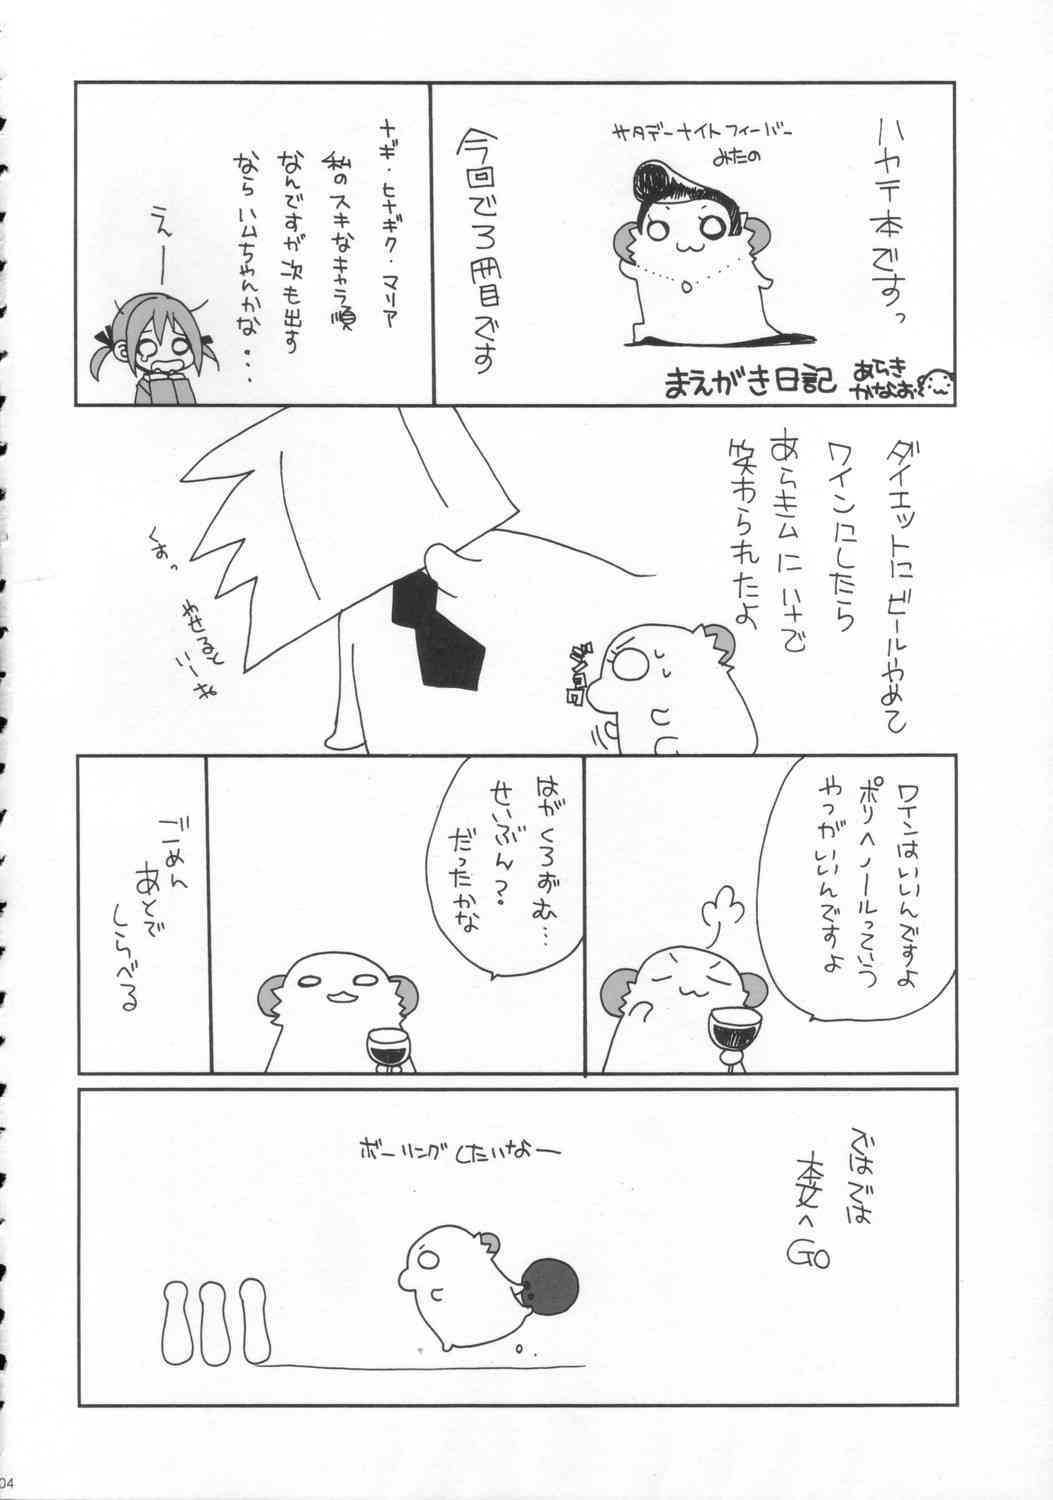 ハヤテ本ですっ
サタデーナイトフィーバー
みたの
今回で3冊目です
まえがき日記
あらき
かなお
ナギ・ヒナギク・マリア
私のスキなキャラ順
なんですが次も出す
ならハムちゃんかな・・・
えー
ダイエットにビールやめて
ワインにしたら
あらきムにいさで
笑わられたよ
ジロロ
くすっ
やせると
いーね
ワインはいいんですよ
ポリヘノールっていう
やつがいいんですよ
はがくろずむ…
せいぶん?
だったかな
ごめん
あとで
しらべる
ではでは
本文へ
GO
ボーリングしたいなー
04